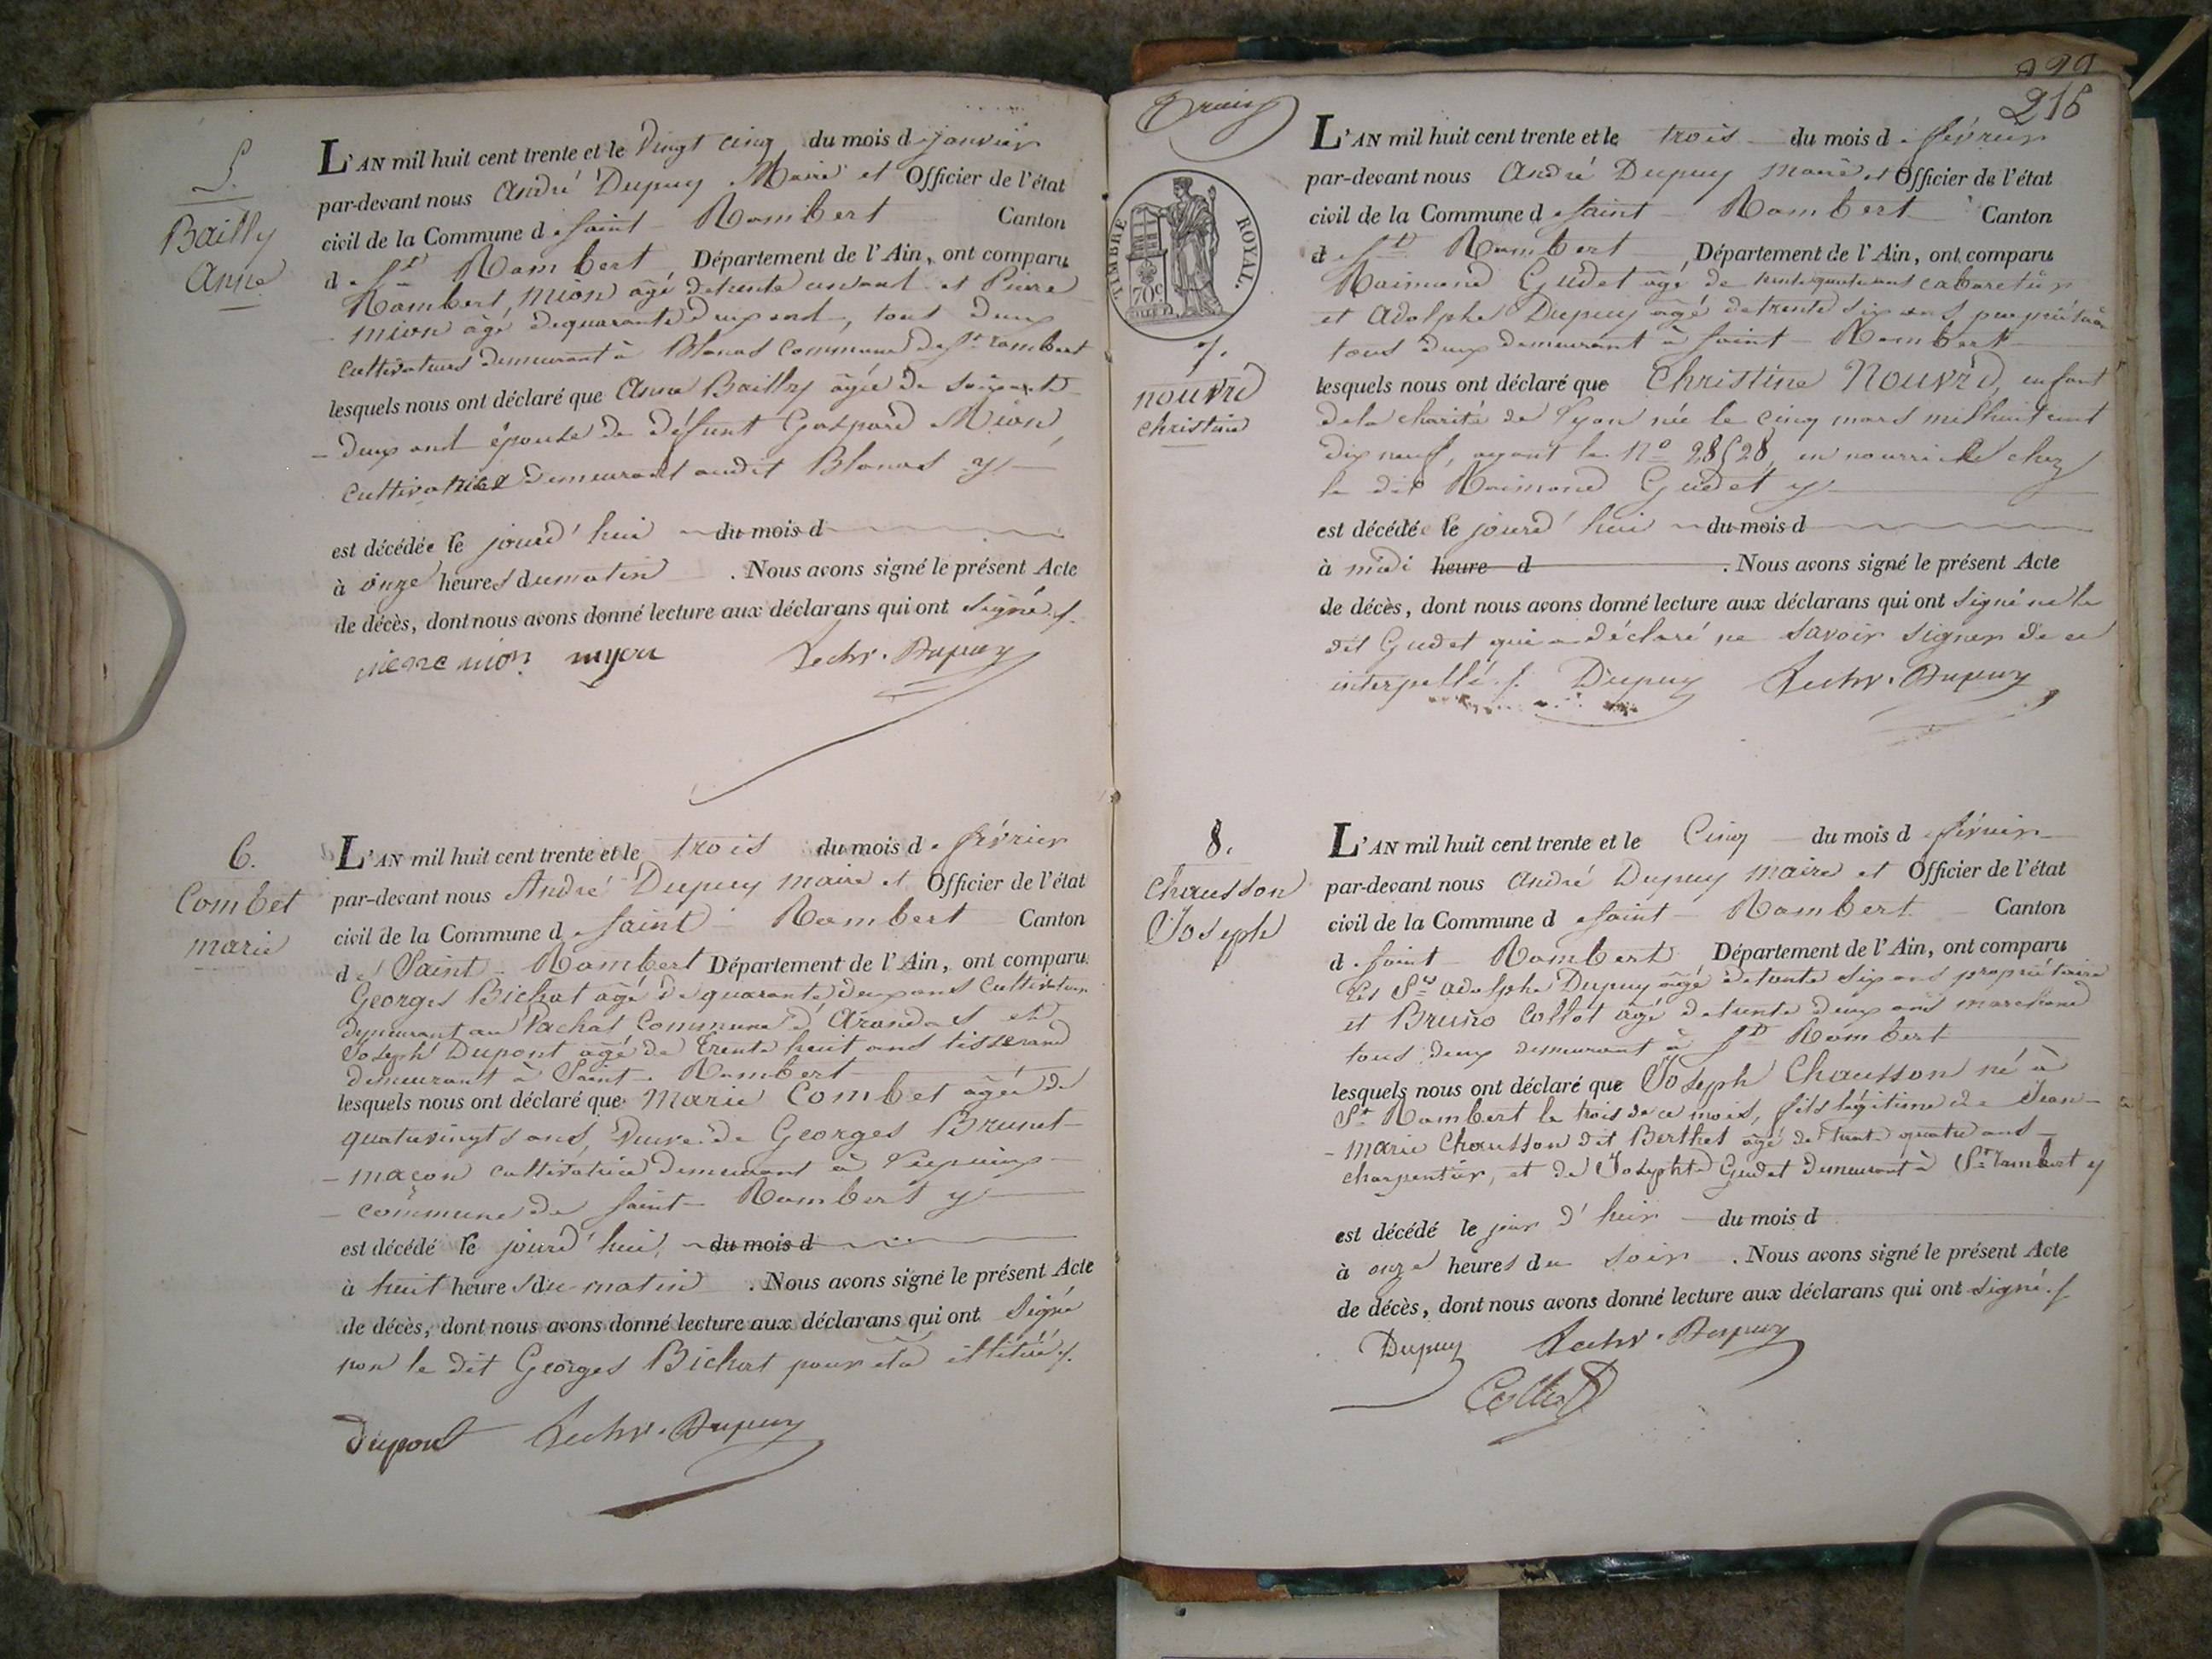 5.
Bailly
Anne
L'AN mil huit cent trente et le Vingt cinq du mois de janvier
par-devant nous André Dupuy Maire et Officier de l'état
civil de la Commune de Saint-Rambert Canton
de St Rambert Département de l'Ain, ont comparu
Rambert Mion agé de trente un ans et Pierre
Mion agé de quarante deux ans, tous deux
cultivateurs demeurant à Blanas commune de St rambert
lesquels nous ont déclaré que Anne Bailly agée de soixante
- deux ans épouse de défunt Gaspard Mion,
cultivatrice demeurant audit Blanas
est décédée le jourd'hui du mois d
à onze heures du matin . Nous avons signé le présent Acte
de décès, dont nous avons donné lecture aux déclarans qui ont signé.
pierre mion Dupuy
6.
Combet
marie
L'AN mil huit cent trente et le trois du mois de février
par-devant nous André Dupuy maire et Officier de l'état
civil de la Commune de Saint-Rambert Canton
de Saint-Rambert Département de l'Ain, ont comparu
Georges Bichat agé de quarante deux ans Cultivateur
demeurant au Vachat Commune d'Arandas et
Joseph Dupont agé de trente huit ans tisserand
demeurant à Saint-Rambert
lesquels nous ont déclaré que Marie Combet agée de
quatrevingts ans, Veuve de Georges Brunet-
- maçon cultivatrice demeurant à
- commune de Saint-Rambert
est décédé le jourd'hui du mois d
à huit heures du matin . Nous avons signé le présent Acte
de décès, dont nous avons donné lecture aux déclarans qui ont signé
non le dit Georges Bichat pour etre illitéré.
Dupont Dupuy
215
TIMBRE ROYAL.
70c
7.
nouvrd
christine
L'AN mil huit cent trente et le trois du mois de février
par-devant nous André Dupuy maire et Officier de l'état
civil de la Commune de Saint-Rambert Canton
de St Rambert Département de l'Ain, ont comparu
Raimond Gudet agé de trente quatre ans cabaretier
et Adolphe Dupuy agé de trente six ans, propriétaire
tous deux demeurant à Saint-Rambert
lesquels nous ont déclaré que Christine Nouvrd, enfant
de la charité de Lyon née le cinq mars mil huit cent
dix neuf, ayant le No 28528, en nourrice chez
le dit Raimond Gudet
est décédée le jourd'hui du mois d
à midi heure d . Nous avons signé le présent Acte
de décès, dont nous avons donné lecture aux déclarans qui ont signé non le
dit Gudet qui a déclaré ne savoir signer de ce
interpellé. Dupuy Dupuy
8.
Chausson
Joseph
L'AN mil huit cent trente et le Cinq du mois de février
par-devant nous André Dupuy maire et Officier de l'état
civil de la Commune de Saint-Rambert Canton
de Saint-Rambert Département de l'Ain, ont comparu
les Srs Adolphe Dupuy agé de trente six ans propriétaire
et Bruno Collot agé de trente deux ans marchand
tous deux demeurant à St Rambert
lesquels nous ont déclaré que Joseph Chausson né à
St Rambert le trois de ce mois, fils légitime de Jean-
- Marie Chausson dit Berthet agé de trente quatre ans
charpentier, et de Josephte Gudet demeurant à St rambert
est décédé le jour d'hier du mois d
à onze heures du soir . Nous avons signé le présent Acte
de décès, dont nous avons donné lecture aux déclarans qui ont signé.
Dupuy Dupuy
Collot